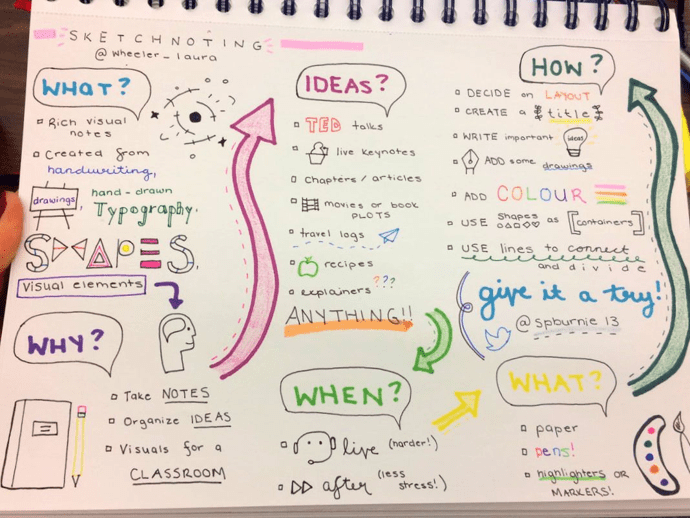 SKETCHNOTING
@wheeler_laura
WHAT?
Rich visual
notes
Created from
handwriting,
drawings,
hand-drawn
Typography,
SHAPES,
visual elements
WHY?
Take NOTES
Organize IDEAS
Visuals for a
CLASSROOM
IDEAS?
TED talks
live keynotes
Chapters/articles
movies or book
PLOTS
travel logs
recipes
explainers ???
ANYTHING!!
WHEN?
live (harder!)
after (less
stress!)
HOW?
DECIDE on LAYOUT
CREATE a title
WRITE important ideas
ADD some drawings
ADD COLOUR
USE Shapes as [containers]
USE lines to connect
and divide
give it a try!
@spburnie13
WHAT?
paper
pens!
highlighters OR
MARKERS!